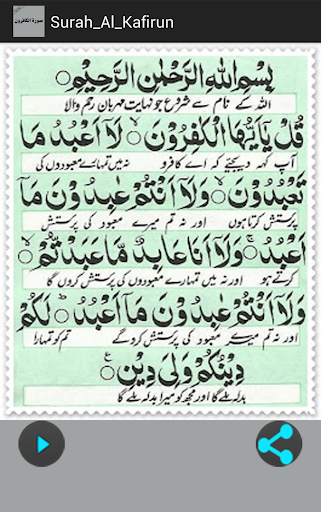 سورة الكافرون
Surah_Al_Kafirun
بِسْمِ اللهِ الرَّحْمٰنِ الرَّحِيْمِ ○
اللہ کے نام سے شروع جو نہایت مہربان رحم والا
قُلْ يٰۤاَيُّهَا الْكٰفِرُوْنَ ○ لَاۤ اَعْبُدُ مَا
آپ کہہ دیجئے کہ اے کافرو نہ میں تمہارے معبودوں کی
تَعْبُدُوْنَ ○ وَلَاۤ اَنْتُمْ عٰبِدُوْنَ مَاۤ
پرستش کرتا ہوں اور نہ تم میرے معبود کی پرستش
اَعْبُدُ ○ وَلَاۤ اَنَا عَابِدٌ مَّا عَبَدْتُّمْ ○
کرتے ہو اور نہ میں تمہارے معبودوں کی پرستش کروں گا
وَلَاۤ اَنْتُمْ عٰبِدُوْنَ مَاۤ اَعْبُدُ ○ لَكُمْ
اور نہ تم میرے معبود کی پرستش کروگے تم کو تمہارا
دِيْنُكُمْ وَلِيَ دِيْنِ ○
بدلہ ملے گا اور مجھ کو میرا بدلہ ملے گا